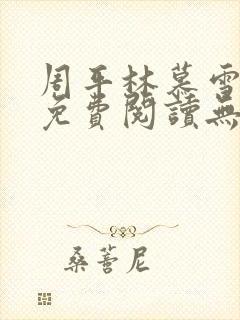 周平林慕雪
免費閱讀無
桑蓍尼